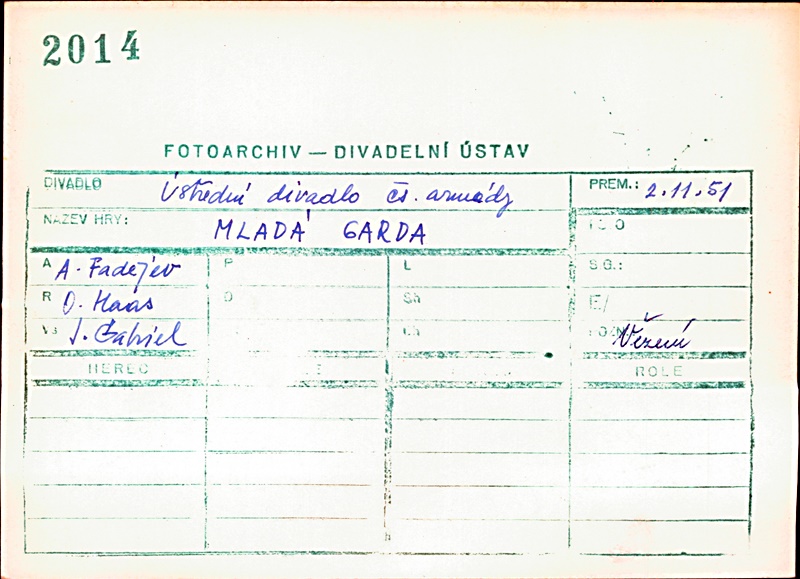 2014
FOTOARCHIV — DIVADELNÍ ÚSTAV
DIVADLO Ústřední divadlo čs. armády PREM.: 2.11.51
NÁZEV HRY: MLADÁ GARDA
A A. Fadějev P L S.G.:
R O. Haas O Sh E/
Vs J. Gabriel Ch Vězení
HEREC ROLE